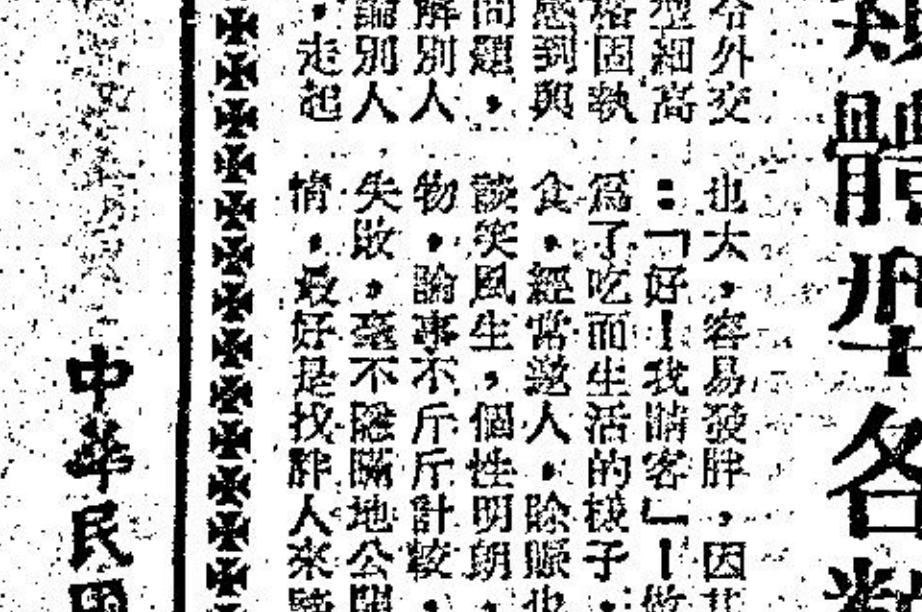 體型各
外交
型細高
格固執
感到與
問題，
解別人
論別人
，走起
也大，容易發胖，因
：「好！我請客」！做
爲了吃而生活的樣子，
食，經常邀人，除賬也
談笑風生，個性明朗，
物，論事不斤斤計較，
失敗，毫不隱瞞地公開
情，最好是找胖人來
中華民國